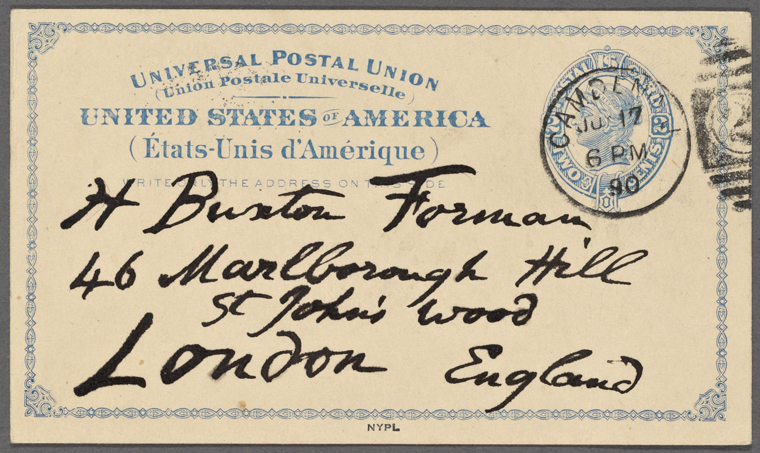 UNIVERSAL POSTAL UNION
(Union Postale Universelle)
UNITED STATES OF AMERICA
(États-Unis d'Amérique)
WRITE ONLY THE ADDRESS ON THIS SIDE
CAMDEN
17
6 PM
90
TWO CENTS
H Buxton Forman
46 Marlborough Hill
St John's Wood
London England
NYPL